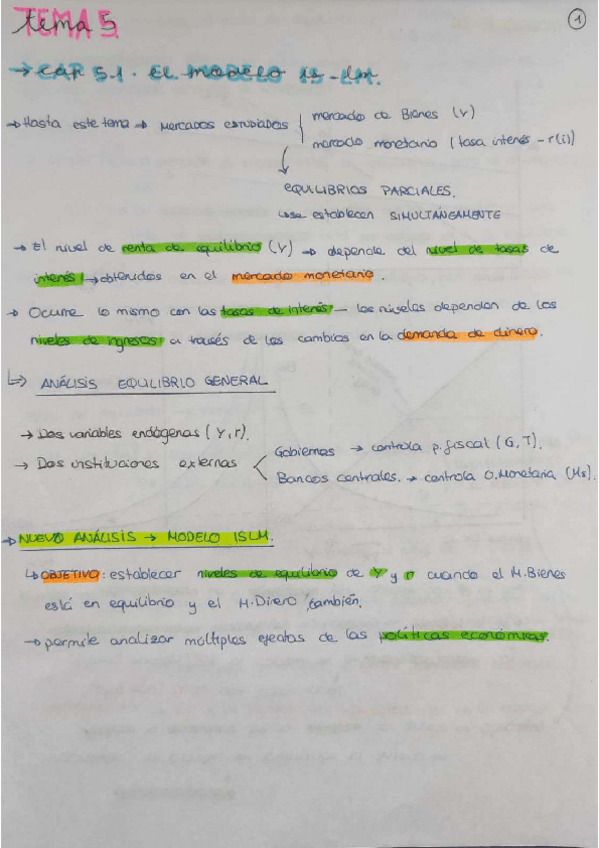 TEMA 5
1
→ CAP 5.1. EL MODELO IS-LM.
→ Hasta este tema → Mercados estudiados
mercado de Bienes (Y)
mercado monetario (tasa interés - r(i))
EQUILIBRIOS PARCIALES.
↳ se establecen SIMULTÁNEAMENTE
→ El nivel de renta de equilibrio (Y) → depende del nivel de tasas de
interés → obtenidos en el mercado monetario.
→ Ocurre lo mismo con las tasas de interés – los niveles dependen de los
niveles de ingresos a través de los cambios en la demanda de dinero.
↳ ANÁLISIS EQUILIBRIO GENERAL
→ Dos variables endógenas (Y, r).
→ Dos instituciones externas
Gobiernos → controla p. fiscal (G, T).
Bancos centrales. → controla O. Monetaria (Ms).
→ NUEVO ANÁLISIS → MODELO ISLM.
↳ OBJETIVO: establecer niveles de equilibrio de Y y r cuando el M. Bienes
está en equilibrio y el M. Diero también.
→ permite analizar múltiples efectos de las políticas económicas.